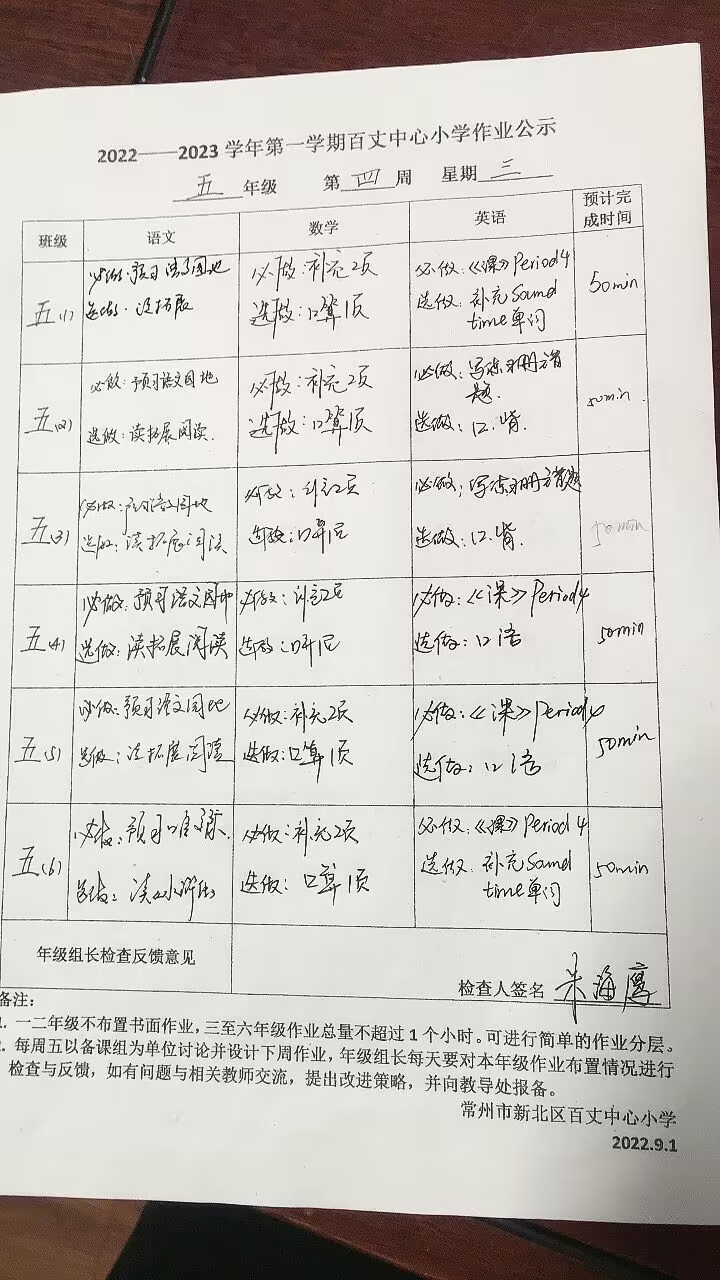 2022——2023 学年第一学期百丈中心小学作业公示
五 年级 第 四 周 星期 三
班级 语文 数学 英语 预计完成时间
五(1)
必做:预习语文园地
选做:
必做:补充2页
选做:口算1页
必做:《课》Period 4
选做:补充Sound
time单词
50min
五(2)
必做:预习语文园地
选做:读拓展阅读.
必做:补充2页
选做:口算1页
必做:写练习册方背
题.
选做:口.背.
50min.
五(3)
必做:语文园地
选做:读拓展阅读
必做:补充2页
选做:口算1页
必做:写练习册方背题
选做:口.背.
50min
五(4)
必做:预习语文园地
选做:读拓展阅读
必做:补充2页
选做:口算1页
必做:《课》Period 4
选做:口语
50min
五(5)
必做:预习语文园地
选做:读拓展阅读
必做:补充2页
选做:口算1页
必做:《课》Period 4
选做:口语
50min
五(6)
必做:预习口语交际.
选做:读水浒传
必做:补充2页
选做:口算1页
必做:《课》Period 4
选做:补充Sound
time单词
50min
年级组长检查反馈意见
检查人签名 朱海霞
备注:
1. 一二年级不布置书面作业,三至六年级作业总量不超过 1 个小时。可进行简单的作业分层。
2. 每周五以备课组为单位讨论并设计下周作业,年级组长每天要对本年级作业布置情况进行
检查与反馈,如有问题与相关教师交流,提出改进策略,并向教导处报备。
常州市新北区百丈中心小学
2022.9.1